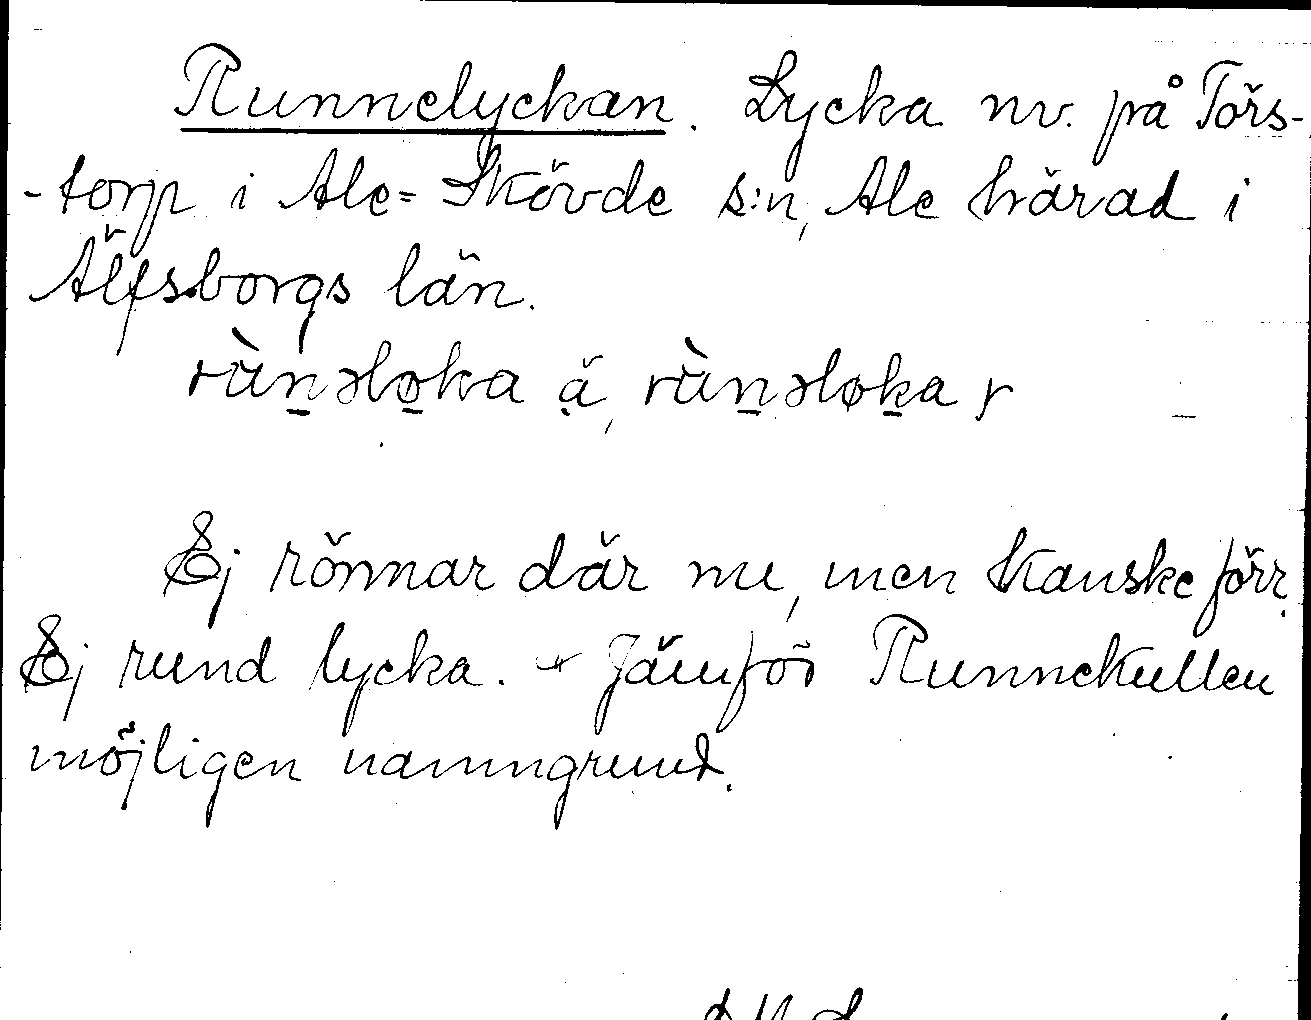 Runnelyckan. Lycka nv. på Törs-
-torp i Ale-Skövde s:n, Ale härad i
Älfsborgs län.
rùnəløka ä, rùnəløka r
Ej rönnar där nu, men kanske förr.
Ej rund lycka. Jämför Runnekullen
möjligen namngrund.